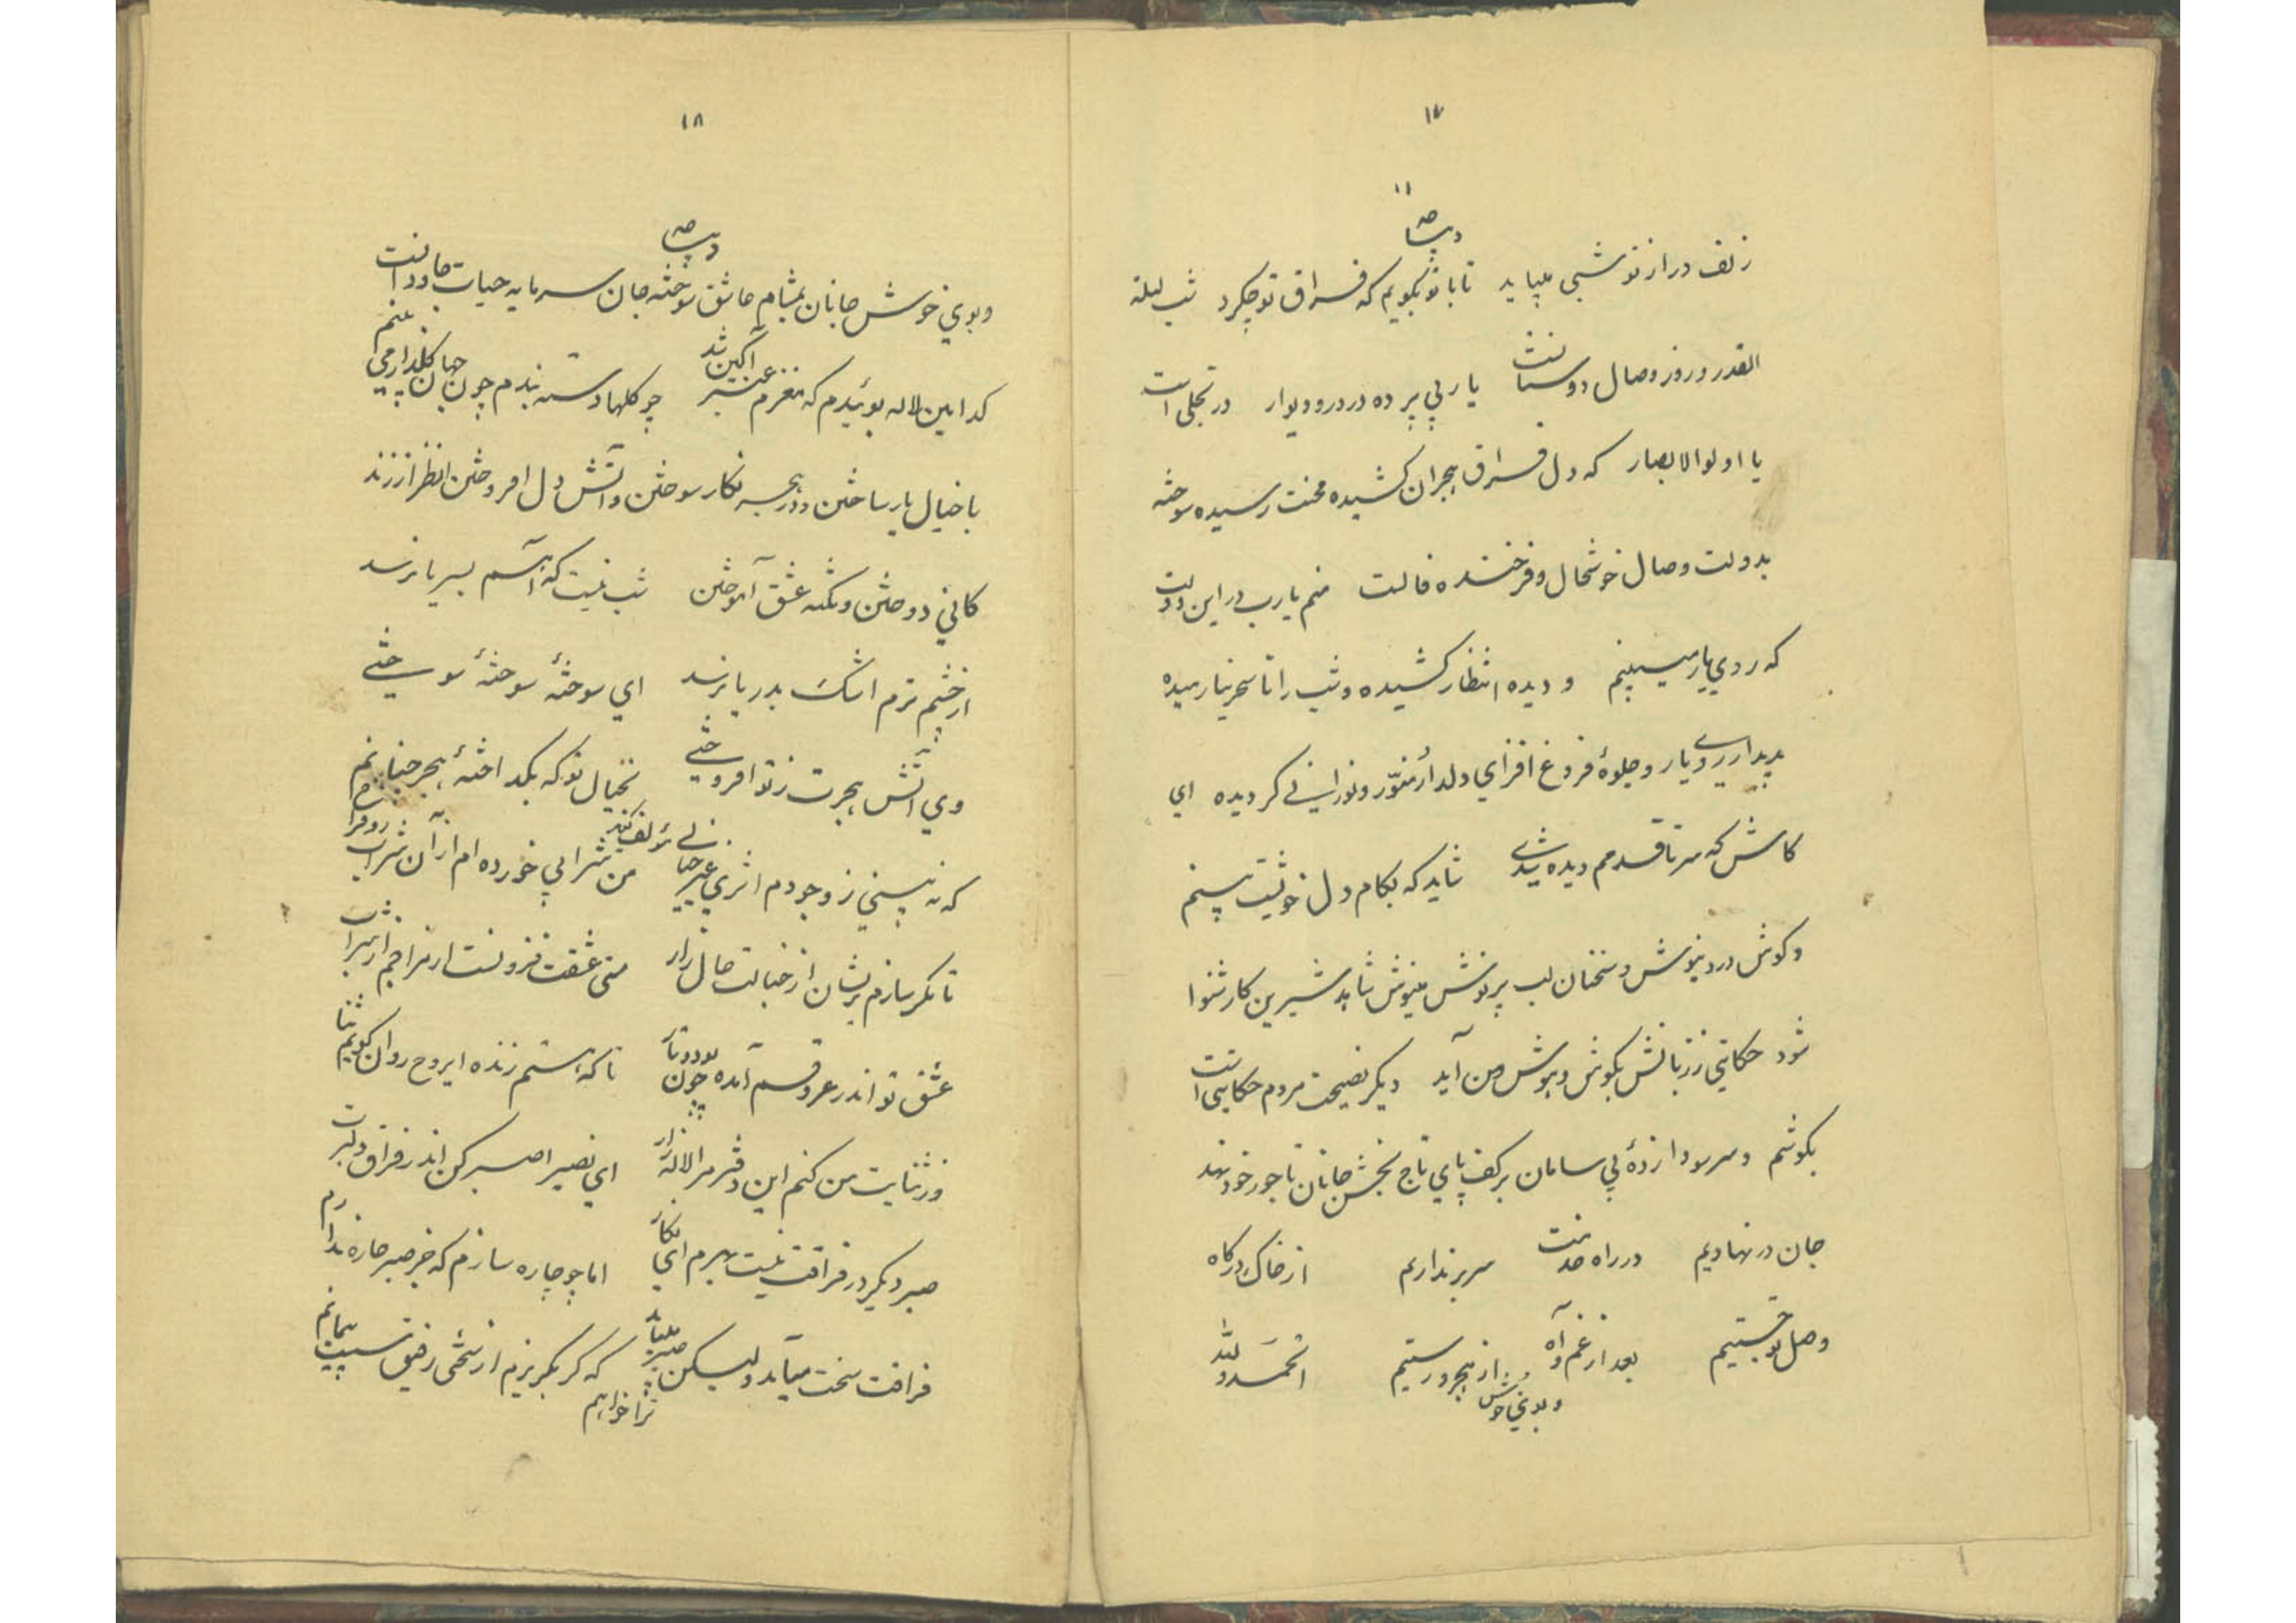 ۱۷
۱۱
دیباچه
زلف دراز تو شبی میباید تا با تو بگویم که فراق تو چکرد شب لیلة
القدر و روز وصال دوستانست یار بی پرده در در و دیوار در تجلی است
یا اولوالابصار که دل فراق هجران کشیده محنت رسیده سوخته
بدولت وصال خوشحال و فرخنده فالست منم یارب در این دولت
که روی یار میبینم و دیده انتظار کشیده و شب را تا سحر نیارمیده
بدیدار روی یار و جلوهٔ فروغ افزای دلدار منوّر و نورانی گردیده ای
کاش که سر تا قدمم دیده شدی شاید که بکام دل خویشت بینم
و گوش درد نیوش و سخنان لب پر نوشش مینوش شاید شیرین کار شنوا
شود حکایتی ز زبانش بگوش و هوش من آید دیگر نصیحت مردم حکایتی است
بگوشم و سر سودا زدهٔ بی سامان بر کف پای تاج بخش جانان تاجور خورسند
جان در نهادیم در راه خدمت سر بر نداریم از خاک درگاه
وصل تو جستیم بعد از غم و آه از هجر و رستیم الحمد لله
و بوی خوش
۱۸
دیباچه
و بوی خوش جانان بمشام عاشق سوخته جان سرمایه حیات جاودانست
کدامین لاله بوئیدم که مغزم عنبر آگین شد چو گلها دسته بندم چون جهان گلدار می بینم
با خیال یار ساختن و در هجر نگار سوختن و آتش دل افروختن انظر از زند
کانی دوختن و نکته عشق آموختن شب نیست که آهم بثریا نرسد
از چشم ترم اشک بدریا نرسد ای سوختهٔ سوختهٔ سوختنی
وی آتش هجرت ز تو افروختنی بخیال تو که بگداختهٔ هجر چنانم
که نه بینی ز وجودم اثری غیر خیالی لمؤلفه من شرابی خورده ام از آن شراب روح فزا
تا نگر سازم پریشان از خیالت حال زار مستی عشقت فزونست از مزاجم از شراب
عشق تو اندر عروقم آمده چون پود و تار تا که هستم زنده ایروح روان گویم ثنا
وز ثنایت من کنم این دفتر مرا لاله زار ای نصیرا صبر کن اندر فراق دلبرت
صبر دیگر در فراقت نیست میرم ای نگار اما چو چاره سازم که جز صبر چاره ندارم
فراقت سخت میآید ولیکن صبر میباید که گر بگریزم از سختی رفیق سست پیمانم
ترا خواهم